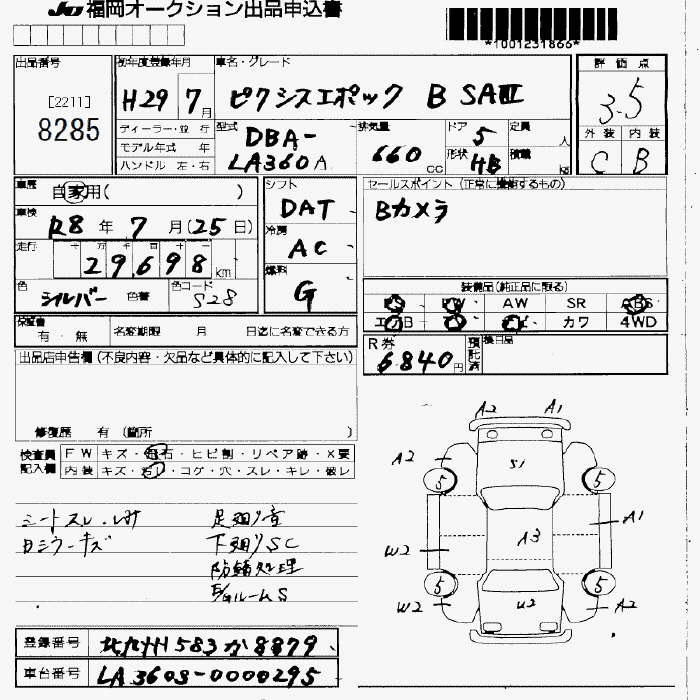 JU 福岡オークション出品申込書
*1001231866*
出品番号
[2211]
8285
初年度登録年月
H29 7月
車名・グレード
ピクシスエポック B SAⅢ
評価点
3.5
外装 内装
C B
ディーラー・並行
モデル年式 年
ハンドル 左・右
型式
DBA-
LA360A
排気量
660 cc
ドア 5
形状 HB
定員 人
積載 kg
車歴 自家用( )
車検 R8年 7月(25日)
走行 十 万 千 百 十 一
29698 km
色 シルバー 色替
色コード S28
シフト
DAT
冷房
AC
燃料
G
セールスポイント (正常に機能するもの)
Bカメラ
装備品(純正品に限る)
PS PW AW SR ABS
エアB カワ 4WD
R券
6840円
預託済
検日品
保証書 有・無
名変期限 月 日迄に名変できる方
出品店申告欄 (不良内容・欠品など具体的に記入して下さい)
修復歴 有 (箇所 )
検査員記入欄
FW キズ・飛石・ヒビ割・リペア跡・X要
内装 キズ・汚れ・コゲ・穴・スレ・キレ・破レ
シートスレ・
内ミラーキズ
足廻り音
下廻りSC
防錆処理
E/GルームS
A2 A1
A2 S1
5 5
A3 A1
W2
5 5
W2 U2 A2
登録番号 北九州 583 か 8879
車台番号 LA360S-0000295